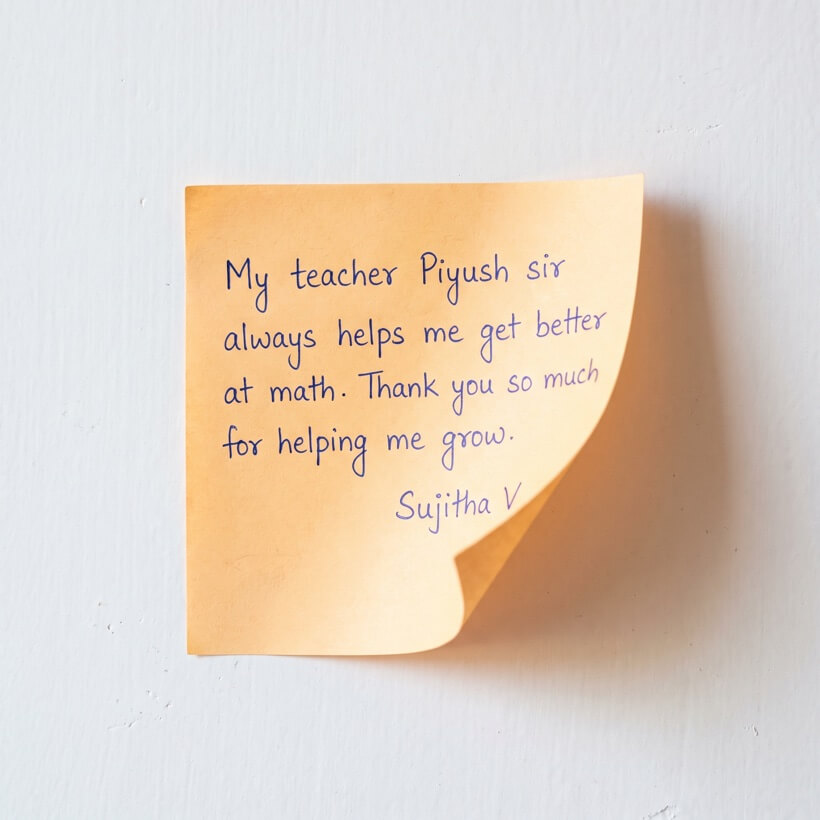 My teacher Piyush sir
always helps me get better
at math. Thank you so much
for helping me grow.
Sujitha V